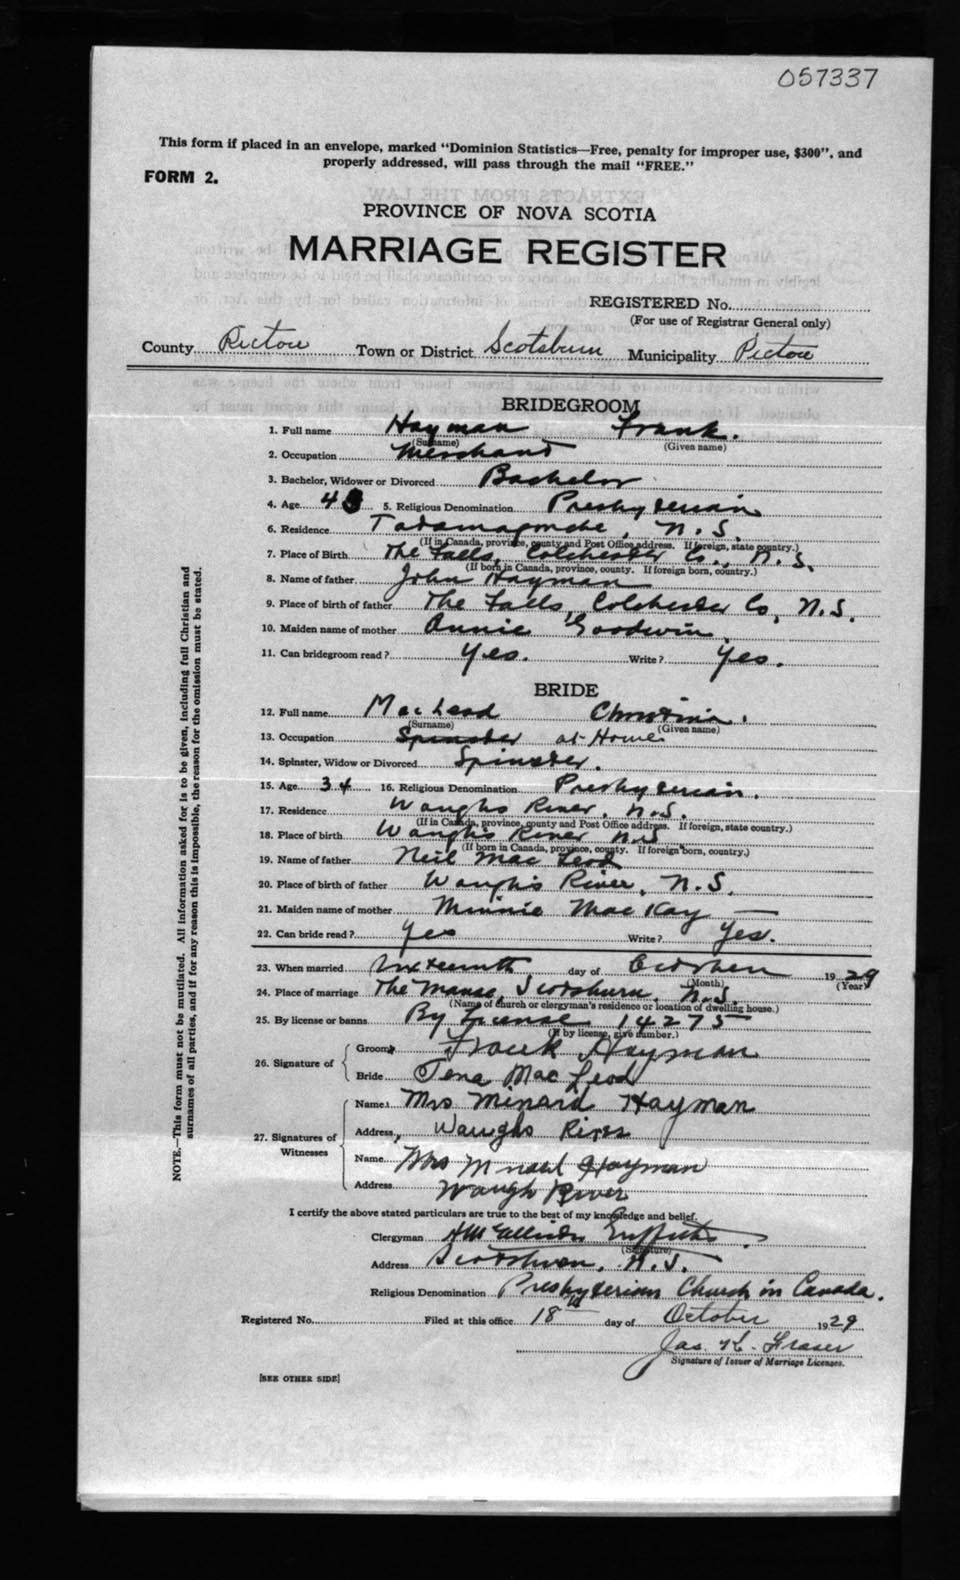 057337
This form if placed in an envelope, marked "Dominion Statistics—Free, penalty for improper use, $300", and
properly addressed, will pass through the mail "FREE."
FORM 2.
PROVINCE OF NOVA SCOTIA
MARRIAGE REGISTER
REGISTERED No.
(For use of Registrar General only)
County Pictou Town or District Scotsburn Municipality Pictou
BRIDEGROOM
1. Full name Hayman Frank.
(Surname) (Given name)
2. Occupation Merchant
3. Bachelor, Widower or Divorced Bachelor
4. Age 5. Religious Denomination Presbyterian
6. Residence Tatamagouche, N.S.
(If in Canada, province, county and Post Office address. If foreign, state country.)
7. Place of Birth The Falls, Colchester Co., N.S.
(If born in Canada, province, county. If foreign born, country.)
8. Name of father John Hayman
9. Place of birth of father The Falls, Colchester Co, N.S.
10. Maiden name of mother Annie Goodwin
11. Can bridegroom read? Yes. Write? Yes.
BRIDE
12. Full name MacLeod Christina.
(Surname) (Given name)
13. Occupation Spinster at Home
14. Spinster, Widow or Divorced Spinster.
15. Age 34 16. Religious Denomination Presbyterian.
17. Residence Waughs River, N.S.
(If in Canada, province, county and Post Office address. If foreign, state country.)
18. Place of birth Waugh's River N.S
(If born in Canada, province, county. If foreign born, country.)
19. Name of father Neil MacLeod
20. Place of birth of father Waugh's River, N.S.
21. Maiden name of mother Minnie MacKay
22. Can bride read? Yes Write? Yes.
23. When married Sixteenth day of October 1929
(Month) (Year)
24. Place of marriage The Manse, Scotsburn, N.S.
(Name of church or clergyman's residence or location of dwelling house.)
25. By license or banns By License 14275
(If by license, give number.)
26. Signature of
Groom Frank Hayman
Bride Tena MacLeod
27. Signatures of Witnesses
Name Mrs Minard Hayman
Address, Waughs River
Name Mrs Hayman
Address Waugh River
I certify the above stated particulars are true to the best of my knowledge and belief.
Clergyman Griffiths
(Signature)
Address Scotsburn, N.S.
Religious Denomination Presbyterian Church in Canada.
Registered No. Filed at this office 18th day of October 1929
Jas. K. Fraser
Signature of Issuer of Marriage Licenses.
[SEE OTHER SIDE]
NOTE.—This form must not be mutilated. All information asked for is to be given, including full Christian and
surnames of all parties, and if for any reason this is impossible, the reason for the omission must be stated.